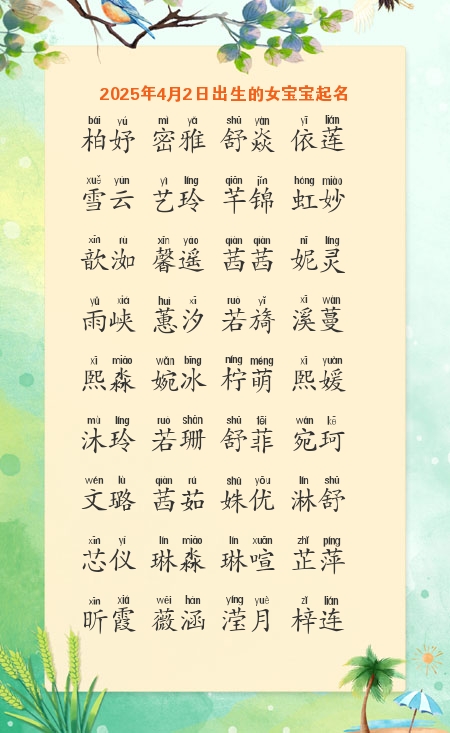 2025年4月2日出生的女宝宝起名
bǎi yú mì yǎ shū yàn yī lián
柏妤 密雅 舒焱 依莲
xuě yún yì líng qiān jǐn hóng miào
雪云 艺玲 芊锦 虹妙
xīn rù xīn yáo qiàn qiàn nī líng
歆洳 馨遥 茜茜 妮灵
yǔ xiá huì xī ruò yǐ xī wàn
雨峡 蕙汐 若旖 溪蔓
xī miǎo wǎn bīng níng méng xī yuàn
熙淼 婉冰 柠萌 熙媛
mù líng ruò shān shū fēi wǎn kē
沐玲 若珊 舒菲 宛珂
wén lù qiàn rú shū yōu lín shū
文璐 茜茹 姝优 淋舒
xīn yí lín miǎo lín xuān zhǐ píng
芯仪 琳淼 琳喧 芷萍
xīn xiá wēi hán yíng yuè zǐ lián
昕霞 薇涵 滢月 梓连